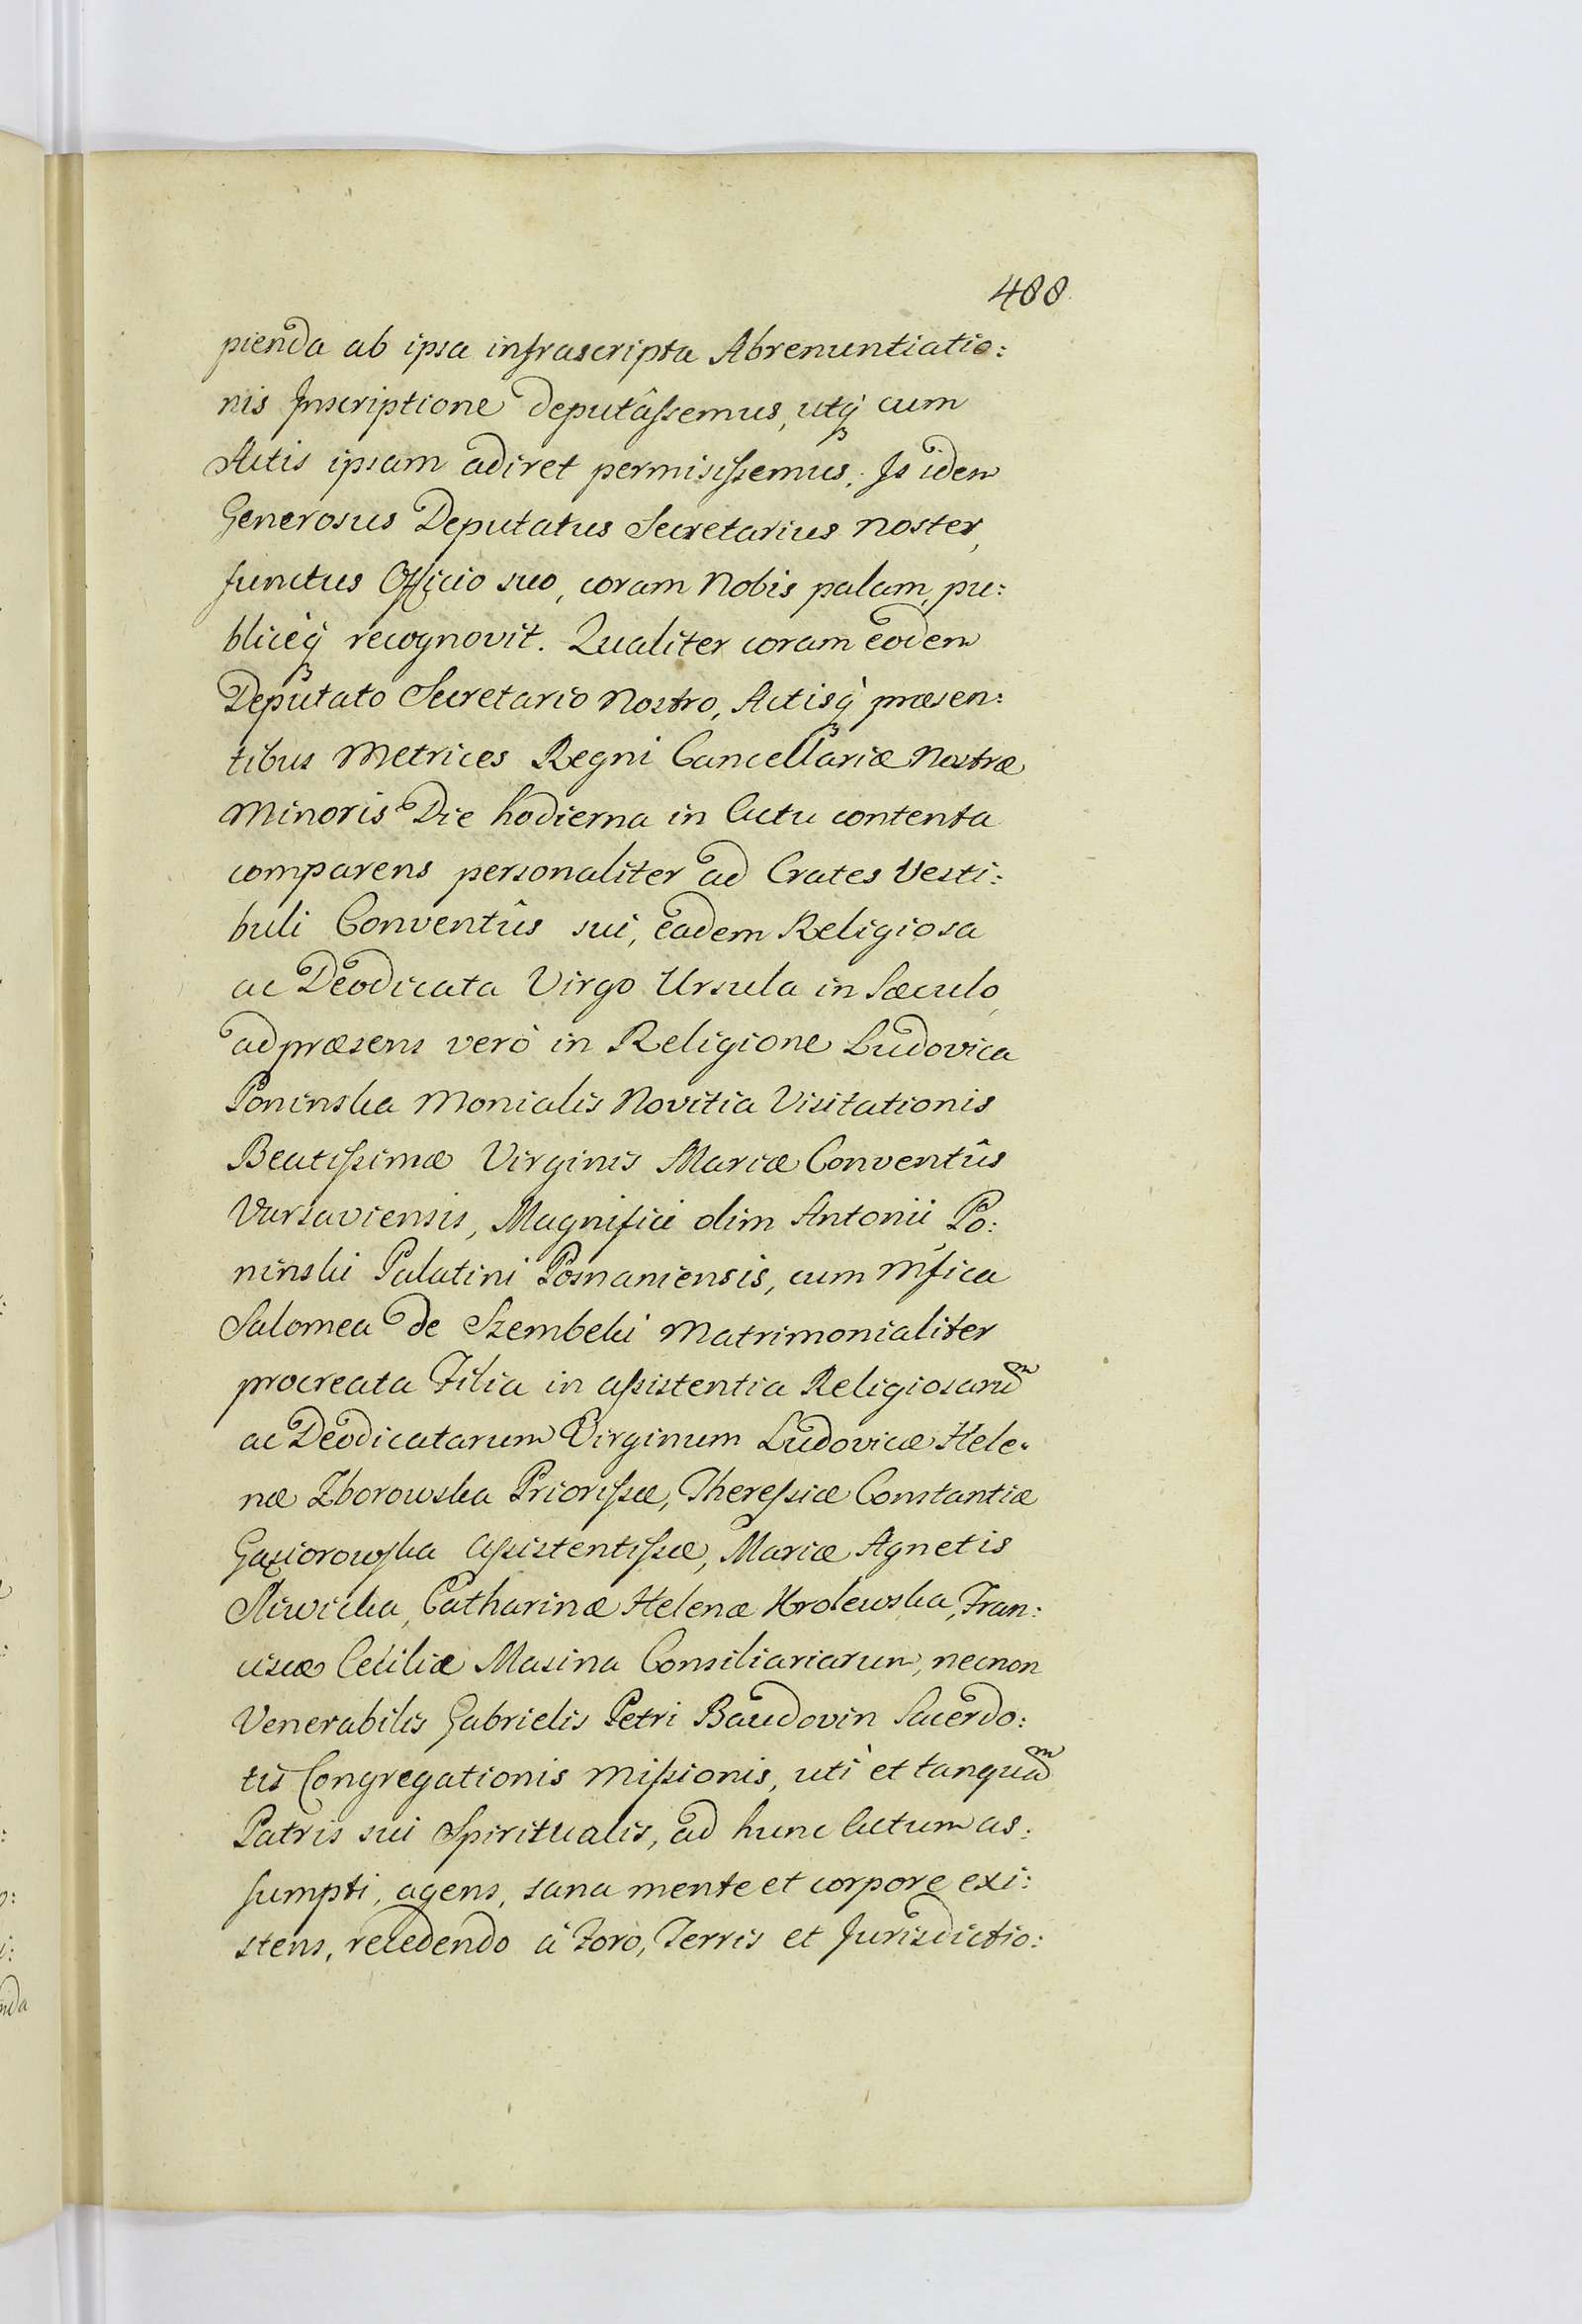 488
pienda ab ipsa infrascripta Abrenuntiatio:
nis Inscriptione deputâssemus, utq; cum
Actis ipsam adiret permisissemus. Is idem
Generosus Deputatus Secretarius Noster,
functus Officio suo, coram Nobis palam, pu:
bliceq; recognovit. Qualiter coram eodem
Deputato Secretario Nostro, Actisq; præsen:
tibus Metrices Regni Cancellariæ Nostræ
Minoris Die hodierna in Actu contenta
comparens personaliter ad Crates Vesti:
buli Conventûs sui, eadem Religiosa
ac Deodicata Virgo Ursula in Sæculo,
ad præsens verò in Religione Ludovica
Poninska Monialis Novitia Visitationis
Beatissimæ Virginis Mariæ Conventûs
Varsaviensis, Magnifici olim Antonii Po:
ninski Palatini Posnaniensis, cum Mfica
Salomea de Szembeki Matrimonialiter
procreata Filia in assistentia Religiosarum
ac Deodicatarum Virginum Ludovicæ Hele:
næ Zborowska Priorissæ, Theressiæ Constantiæ
Gąsiorowska Assistentissæ, Mariæ Agnetis
Sliwicka, Catharinæ Helenæ Krolewska, Fran:
ciscæ Ceciliæ Masina Consiliariarum, necnon
Venerabilis Gabrielis Petri Baudovin Sacerdo:
tis Congregationis Missionis, utì et tanquam
Patris sui Spiritualis, ad hunc Actum as:
sumpti, agens, sana mente et corpore exi:
stens, recedendo à Foro, Terris et Jurisdictio: